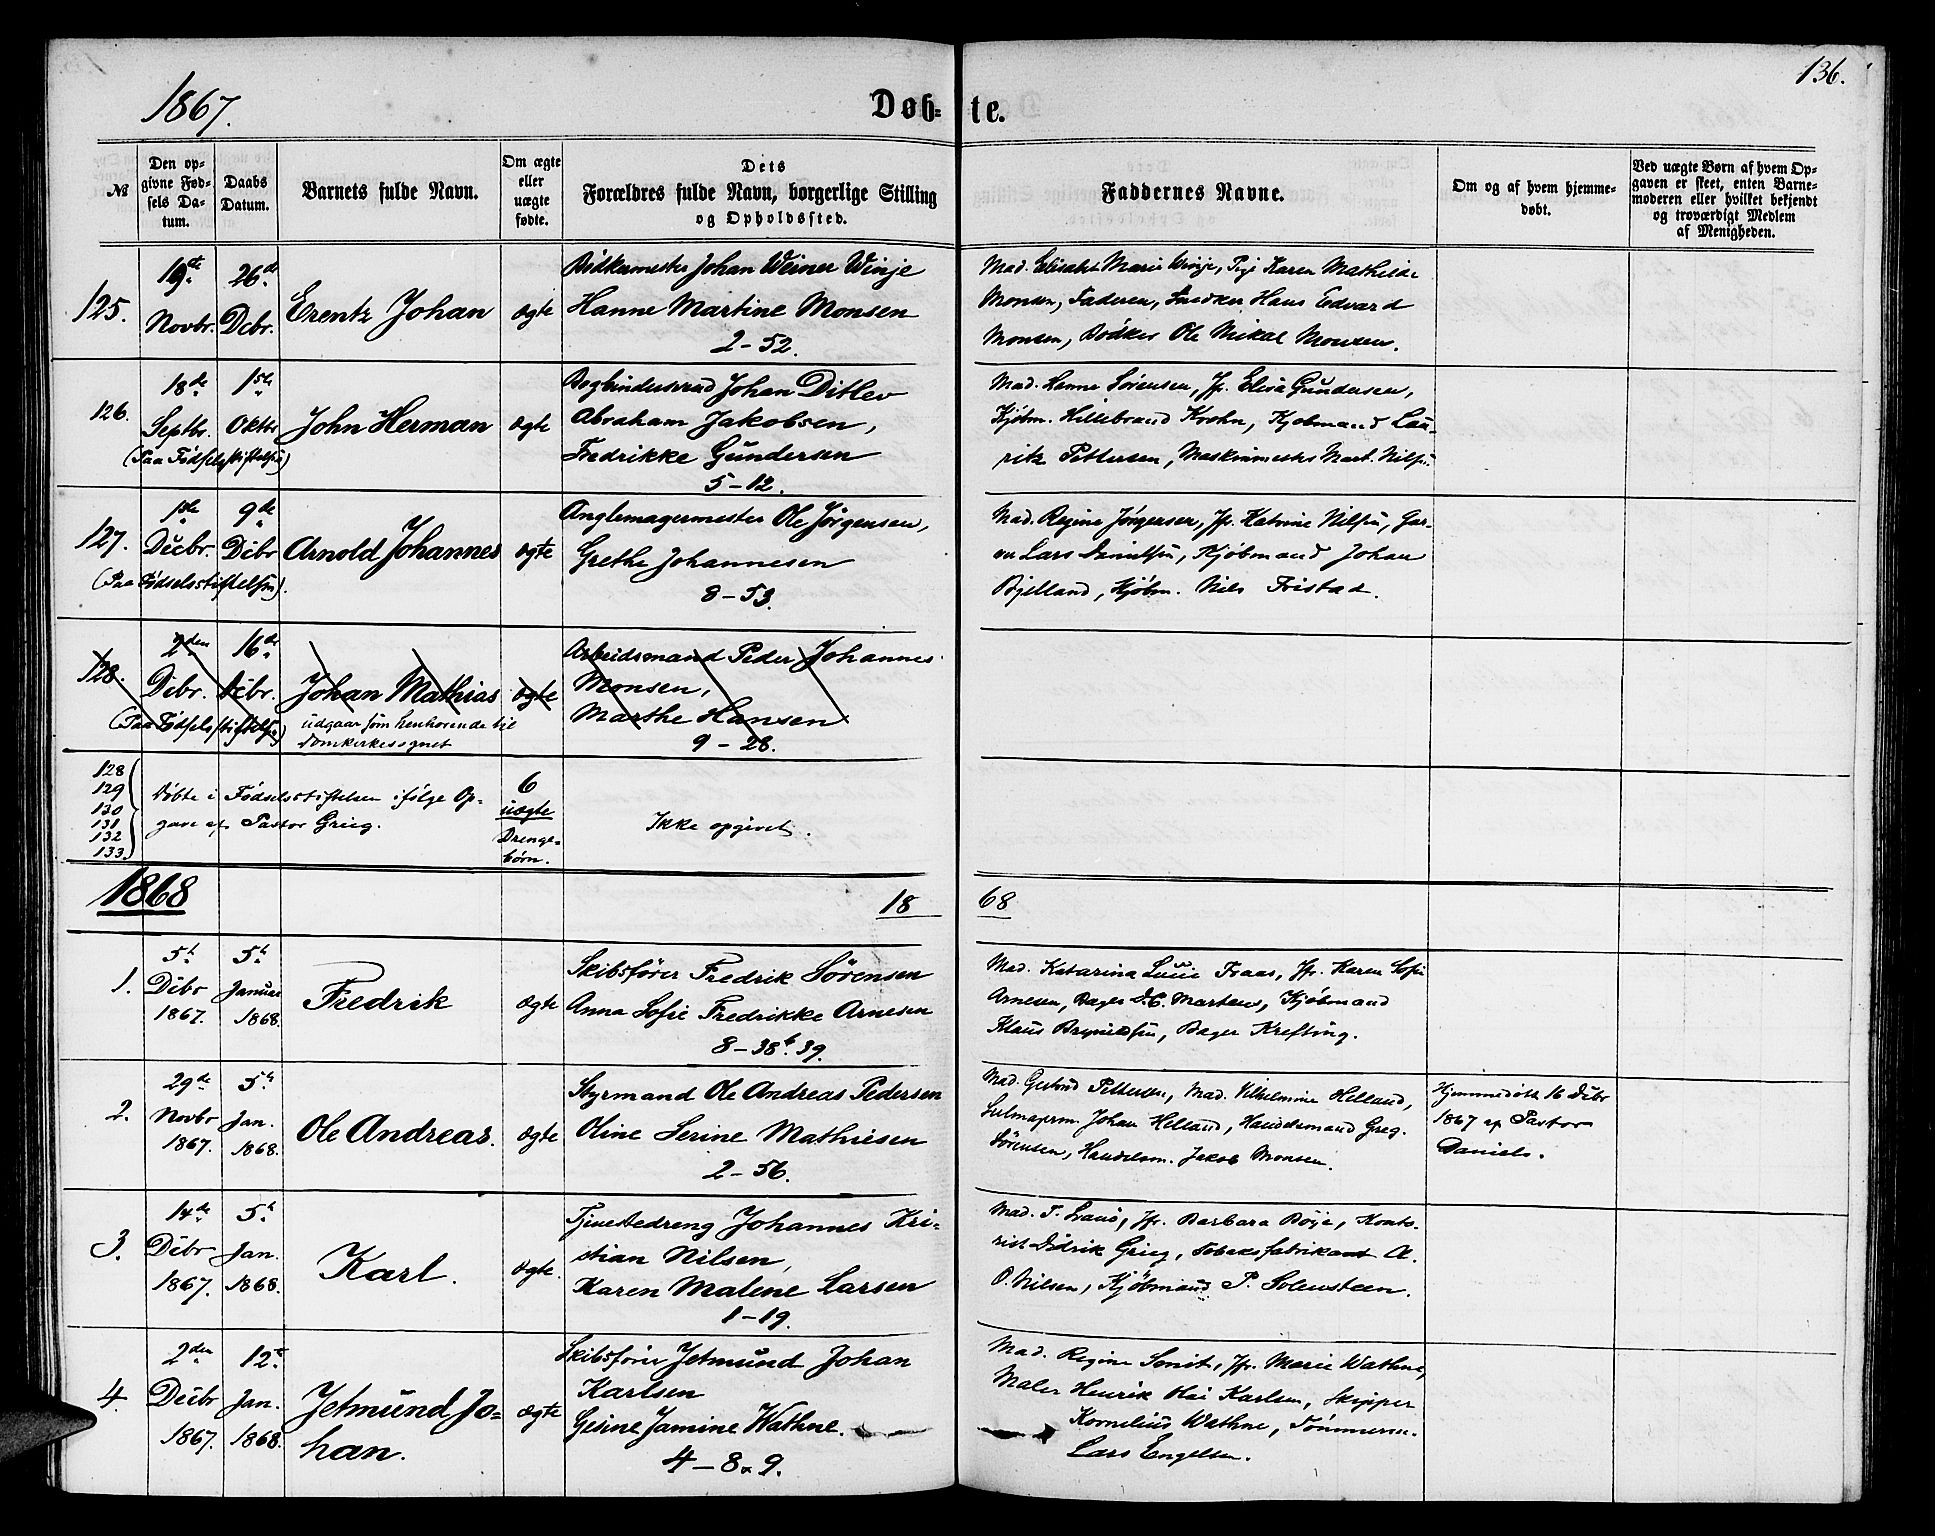 136.
1867.
Døb- te.
№
Den op-
givne Fød-
sels Da-
tum.
Daabs
Datum.
Barnets fulde Navn.
Om ægte
eller
uægte
fødte.
Dets
Forældres fulde Navn, borgerlige Stilling
og Opholdssted.
Faddernes Navne.
Om og af hvem hjemme-
døbt.
Ved uægte Børn af hvem Op-
gaven er skeet, enten Barne-
moderen eller hvilket bekjendt
og troværdigt Medlem
af Menigheden.
125.
19de
Novbr.
26de
Dcbr.
Erentz Johan
ægte
Bødkermester Johan Werner Winje
Hanne Martine Monsen
2-52.
Mad. Elisabet Marie Winje, Pige Karen Mathilde
Monsen, Faderen, Snedker Hans Edvard
Monsen, Bødker Ole Mikal Monsen.
126.
18de
Septbr.
1ste
Oktbr
(Paa Fødselsstiftelsen)
John Herman
ægte
Bogbindersvend Johan Ditlev
Abraham Jakobsen,
Fredrikke Gundersen
5-12.
Mad. Hanne Sørensen, Jfr. Elisa Gundersen,
Kjøbm. Hillebrand Krohn, Kjøbmand Lau-
ritz Pettersen, Maskinmester Mart. Nilsen.
127.
1ste
Decbr.
9de
Dcbr
(Paa Fødselsstiftelsen).
Arnold Johannes
ægte
Anglemagermester Ole Jörgensen,
Grethe Johannesen
8-53.
Mad. Regine Jørgensen, Jfr. Katrine Nilsen, Gar-
ver Lars Danielsen, Kjøbmand Johan
Bjelland, Kjøbm. Nils Fristad.
128.
2den
Dcbr.
16de
Dcbr.
(Paa Fødselsstiftelsen)
Johan Mathias
udgaar som henhørende til
Domkirkesognet
ægte
Arbeidsmand Peder Johannes
Monsen,
Marthe Hansen
9-28.
128
129
130
131
132
133.
Døbte i Fødselsstiftelsen ifølge Op-
gave af Pastor Grieg.
6
uægte
Drenge-
børn.
Ikke opgivet.
1868
18 68
1.
5te
Dcbr
1867.
5te
Januar
1868.
Fredrik
ægte
Skibsfører Fredrik Sørensen
Anna Sofie Fredrikke Arnesen
8-38b.39.
Mad. Katarina Lucie Fraas, Jfr. Karen Sofie
Arnesen, Bager D.C. Martens, Kjøbmand
Klaus Bernildsen, Bager Krefting.
2.
29de
Novbr
1867.
5te
Jan.
1868.
Ole Andreas.
ægte
Styrmand Ole Andreas Pedersen
Oline Serine Mathiesen
2-56.
Mad. Gertrud Pettersen, Mad. Vilhelmine Helland,
Seilmagerm. Johan Helland, Handelsmand Greg.
Sørensen, Handelsm. Jakob Monsen.
Hjemmedøbt 16 Dcbr
1867 af Pastor
Daniels.
3.
14de
Dcbr
1867.
5te
Jan.
1868.
Karl.
ægte.
Tjenestedreng Johannes Kri-
stian Nilsen,
Karen Malene Larsen
1-19.
Mad. T. Jfr. Barbara Böje, Konto-
rist Didrik Grieg, Tobaksfabrikant A.
O. Nilsen, Kjøbmand P. Solensteen.
4.
2den
Decbr
1867.
12te
Jan.
1868.
Jetmund Jo-
han.
ægte
Skibsfører Jetmund Johan
Karlsen
Gesine Jamine Wathne.
4-8&9.
Mad. Regine Smit, Jfr. Marie Wathne,
Maler Henrik Karlsen, Skipper
Kornelius Wathne, Tømmerm.
Lars Engelsen.